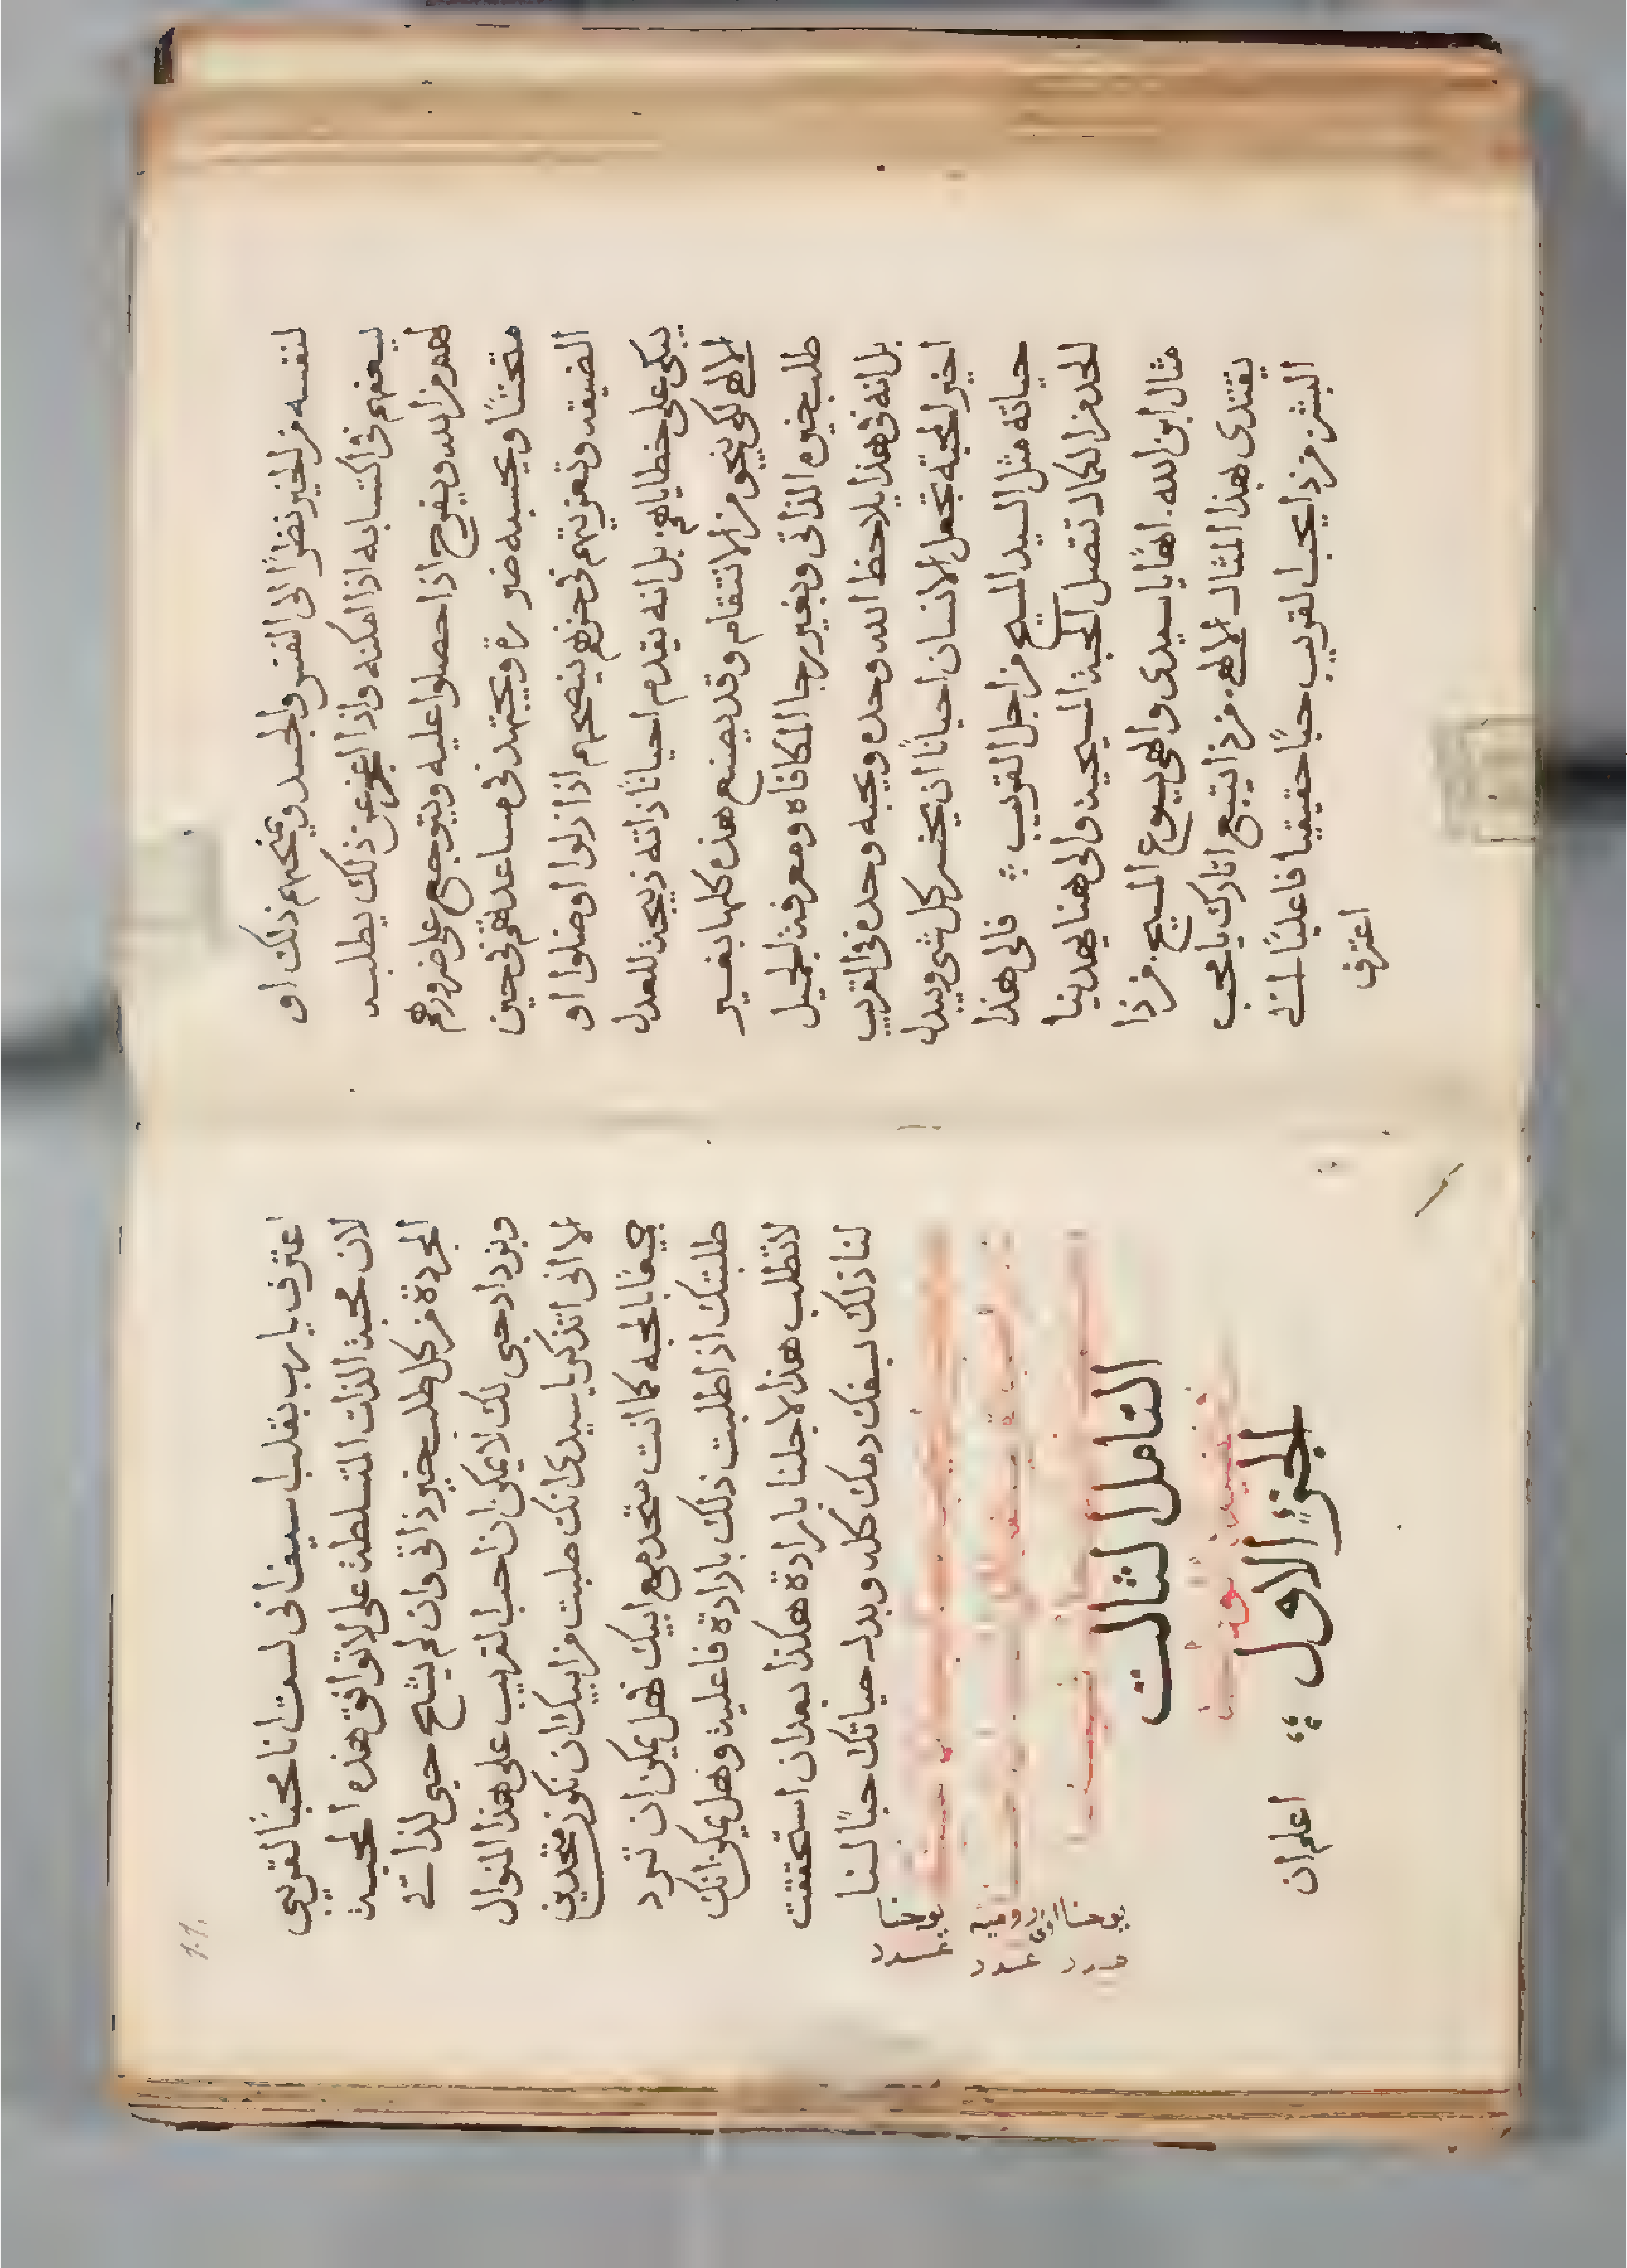 لنفسه من الخير نظرًا الى النفس والجسد ويمنحهم ذلك او
ليعفهم في اكتسابه اذا امكنه واذا عجز عن ذلك يطلبه
لهم من الله ويفرح اذا حصلوا عليه ويتوجع على ضرورهم
متحننًا ويحسبه ضرورة ويجتهد في مساعدتهم في حين
الضيقه وتعزيتهم في حزنهم ينصحهم اذا زلوا او ضلوا او
يبكي على خطاياهم بل انه يقدم احيانًا ذاته ذبيحة للعدل
الالهي لكي ينجو من الانتقام وقد يصنع هذه كلها بغير
طلب خيره الذاتي وبغير رجا المكافاه ومعرفة الجميل
بل انه في هذا يلاحظ الله وحده ويحبه وحده في القريب
اخير المحبة تجعل الانسان احيانًا ان يخسر كل شي ويبذل
حياته مثل السيد المسيح من اجل القريب فالى هذا
الحد من الكمال تتصل المحبة المسيحية والى هنا يهدينا
مثال ابن الله. اهًا يا سيدي والهي يسوع المسيح. من ذا
يقتدى بهذا المثال الالهي. من ذا يتبع اثارك يا محب
البشر من ذا يحب القريب حبًا حقيقيا فاعليًا انني
اعترف
اعترف يا رب بقلب اسيف اني لست انا محبًا لقريبي
لان محبة الذات المتسلطة علي لا توافق هذه المحبة
المجردة من كل طلب خير ذاتي وان لم يشح حبي لذاتي
ويزداد حبي لك لا يمكن ان احب القريب على هذا المنوال
الا اني اتذكر يا سيدي انك طلبت من ابيك ان نكون متحدين
جميعًا بالمحبه كما انت متحد مع ابيك فهل يمكن ان ترد
طلبتك اذ اطلبت ذلك بارادة فاعلية وهل يمكن انك
لا تطلب هذا لاجلنا بارادة هكذا بعد ان استحققت
لنا ذلك بسفك دمك كله وبذل حياتك حبًا لنا
يوحنا
عدد
رومية
عدد
يوحنا اولى
عدد
التامل الثالث
الجزء الاول
اعلم ان